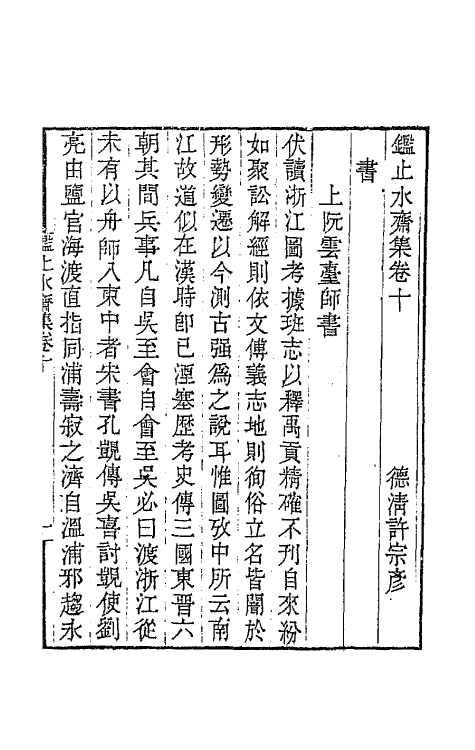 鑑止水齋集卷十
德清許宗彥
書
上阮雲臺師書
伏讀浙江圖考據班志以釋禹貢精確不刊自來紛
如聚訟解經則依文傅義志地則徇俗立名皆闇於
形勢變遷以今測古强爲之說耳惟圖攷中所云南
江故道似在漢時卽已湮塞歷考史傳三國東晋六
朝其間兵事凡自吳至會自會至吳必曰渡浙江從
未有以舟師入東中者宋書孔覬傳吳喜討覬使劉
亮由鹽官海渡直指同浦壽寂之濟自溫浦邪趨永
鑑止水齋集卷十
一